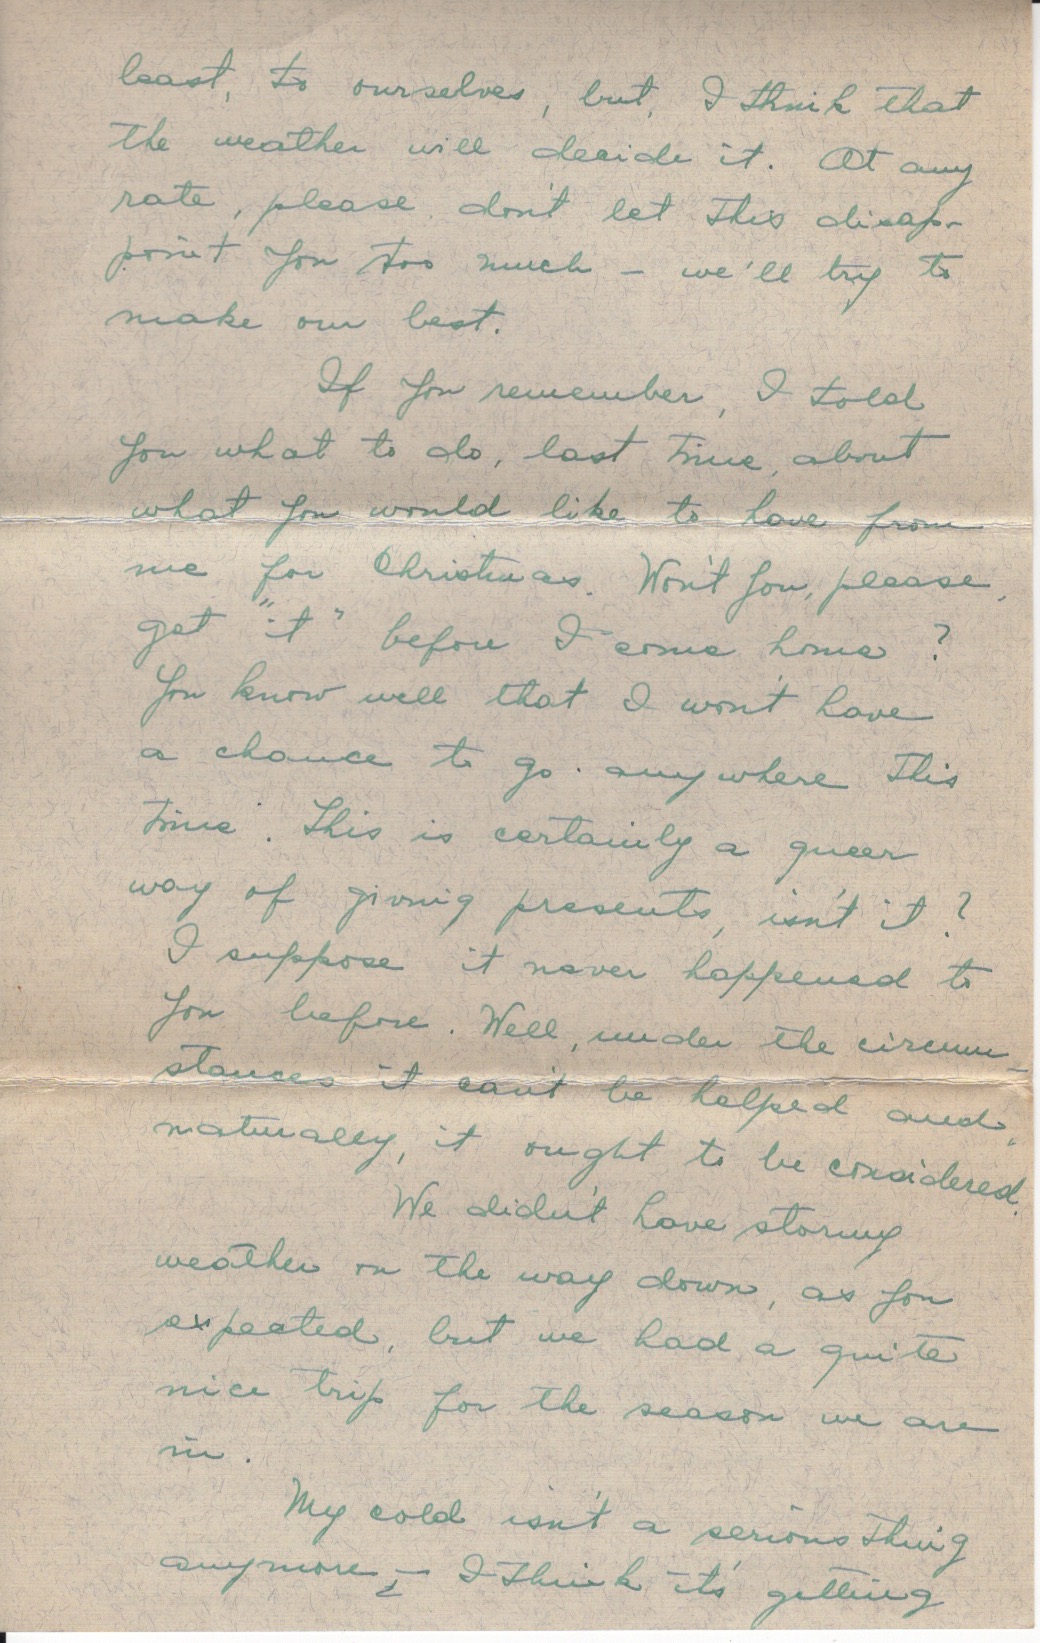 least, to ourselves, but, I think that
the weather will decide it. At any
rate, please don't let this disap-
point you too much - we'll try to
make our best.
If you remember, I told
you what to do, last time, about
what you would like to have from
me for Christmas. Won't you, please,
get "it" before I come home?
You know well that I won't have
a chance to go anywhere this
time. This is certainly a queer
way of giving presents, isn't it?
I suppose it never happened to
you before. Well, under the circum-
stances it can't be helped and,
naturally, it ought to be considered.
We didn't have stormy
weather on the way down, as you
expected, but we had a quite
nice trip for the season we are
in.
My cold isn't a serious thing
anymore - I think it's getting